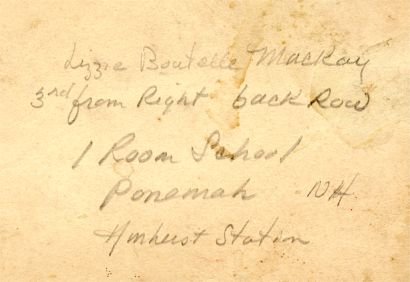 Lizzie Boutelle Mackay
3rd from Right back Row
1 Room School
Ponemah NH
Amherst Station